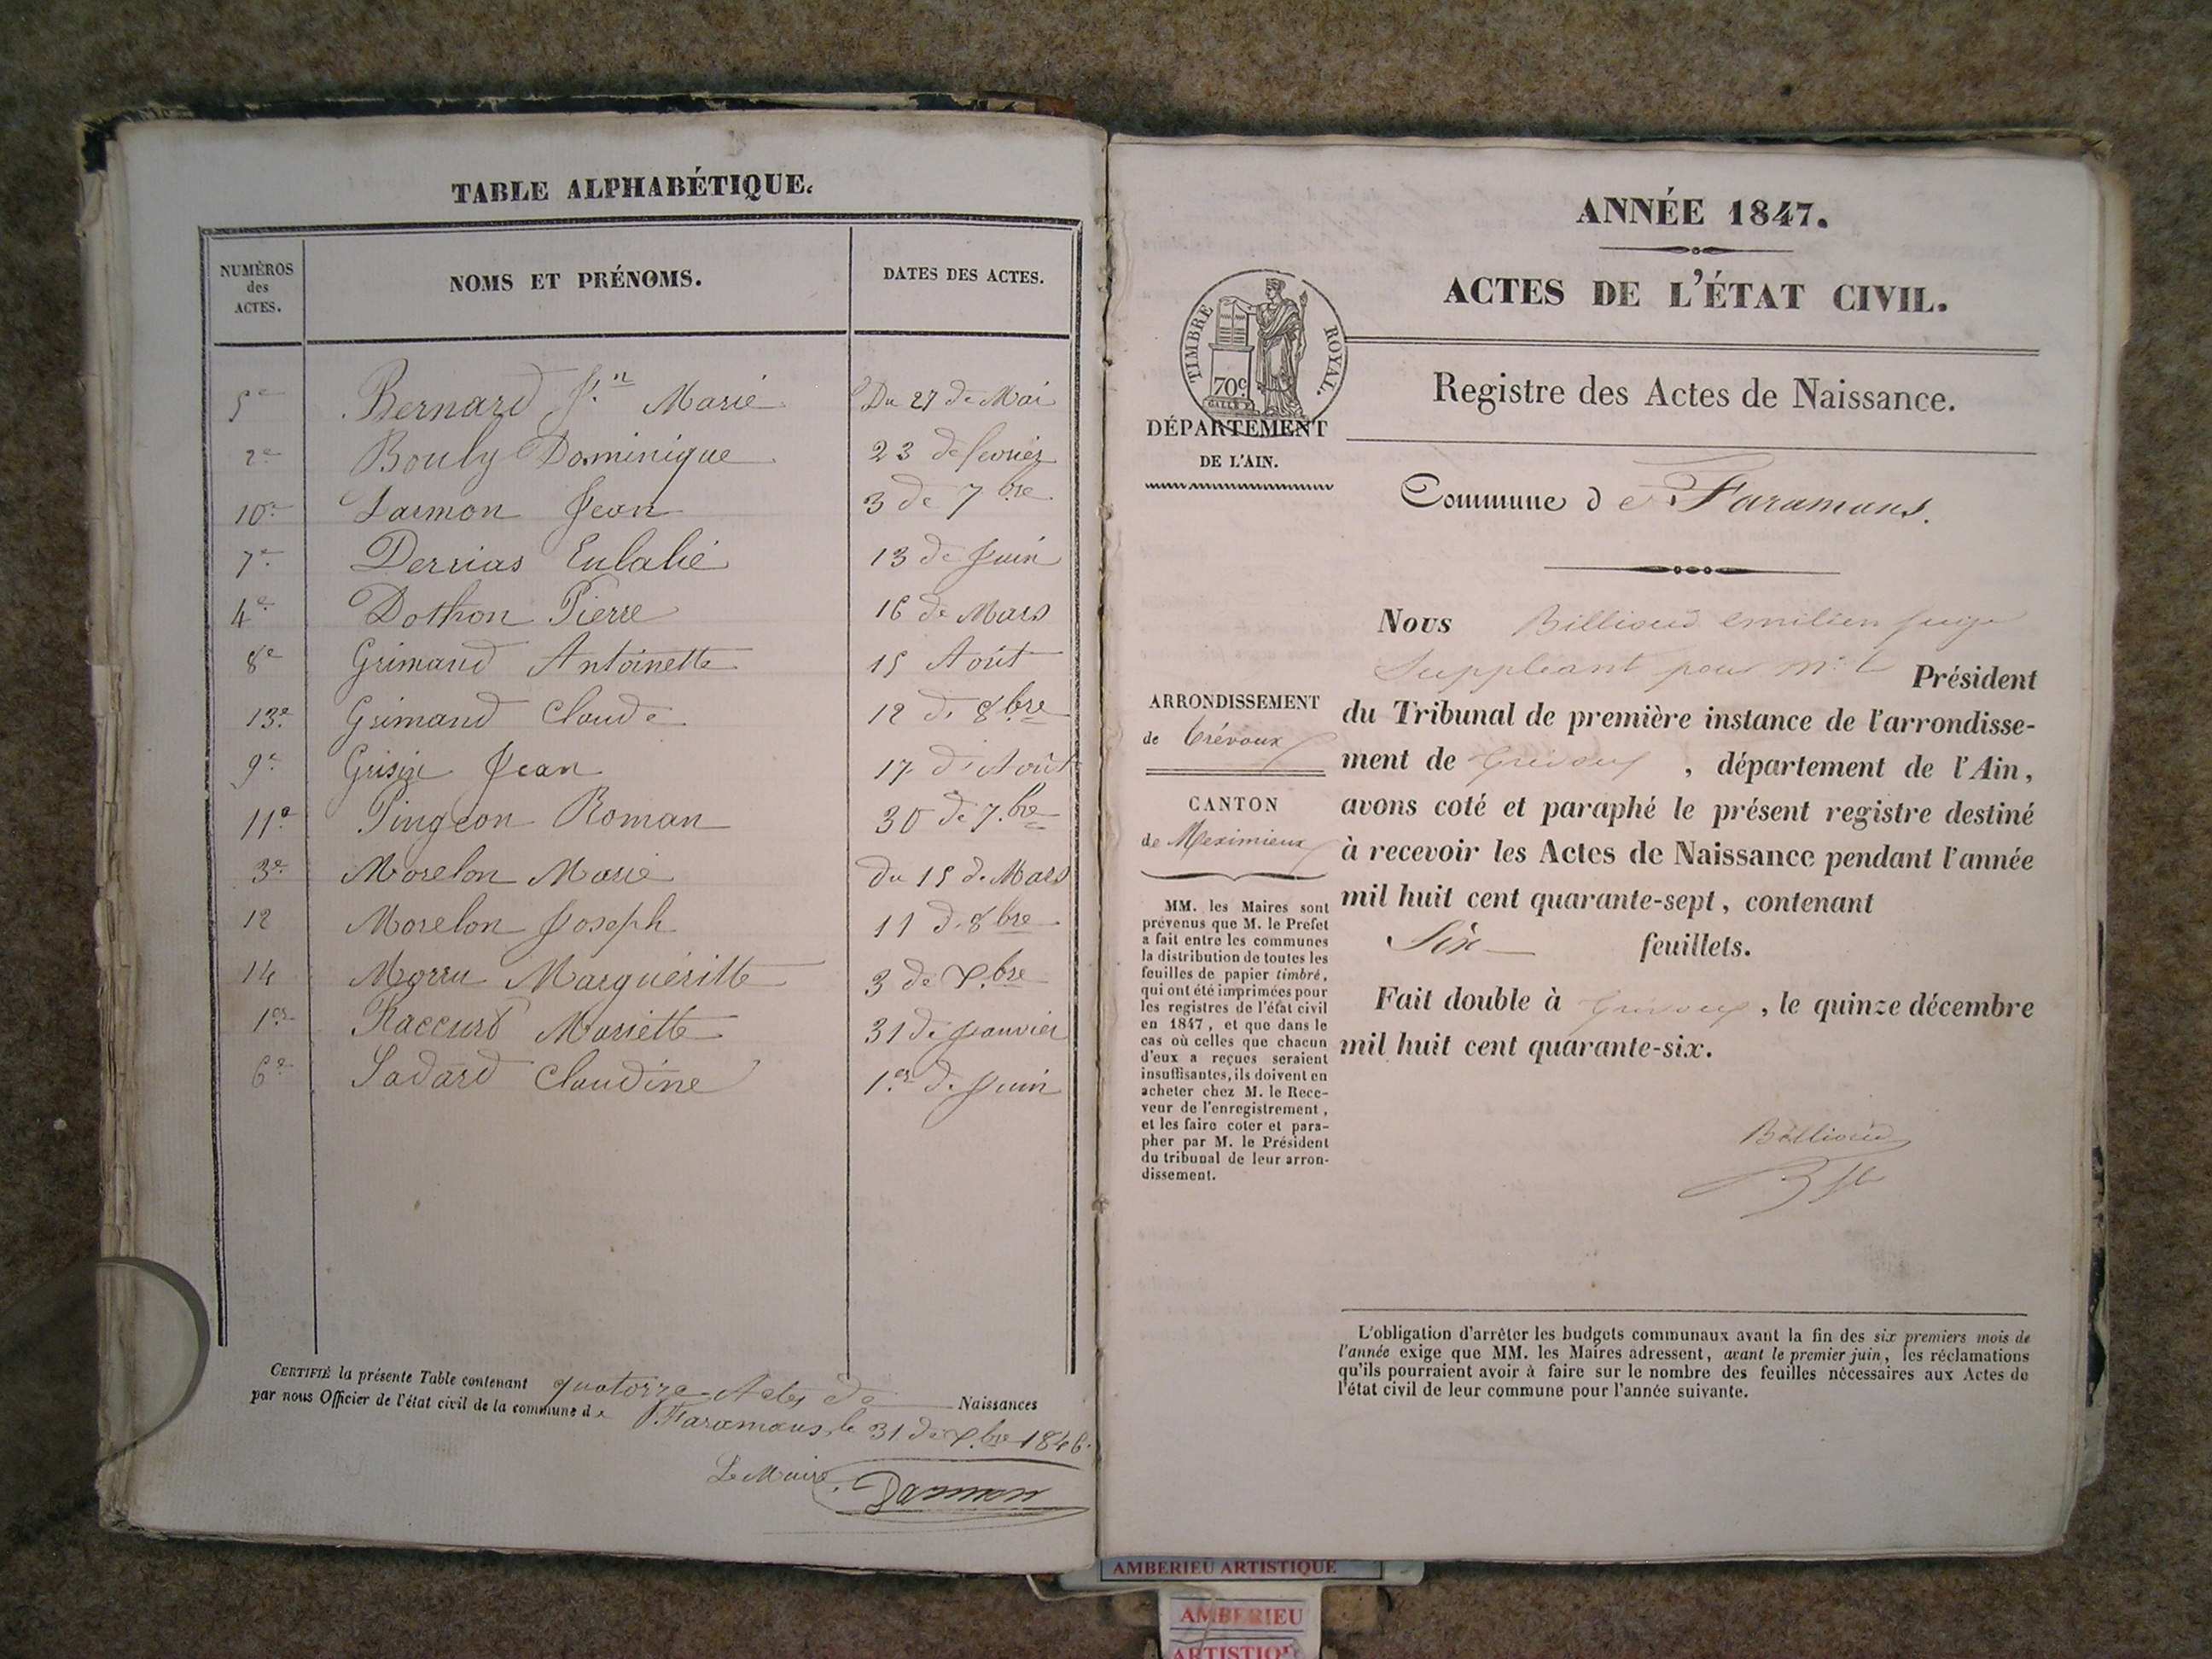 TABLE ALPHABÉTIQUE.
NUMÉROS des ACTES. NOMS ET PRÉNOMS. DATES DES ACTES.
5e Bernard Jn Marie Du 27 de Mai
2e Bouly Dominique 23 de fevrier
10e Darmon Jean 3 de 7.bre
7e Derrias Eulalie 13 de Juin
4e Dothon Pierre 16 de Mars
8e Grimaud Antoinette 15 Août
13e Grimaud Claude 12 de 8.bre
9e Jean 17 d'Août
11e Pingeon Roman 30 de 7.bre
3e Morelon Marie du 15 de Mars
12 Morelon Joseph 11 d. 8bre
14 Marguéritte 3 de X.bre
1er Raccurt Mariette 31 de Janvier
6e Sadard Claudine 1.er de Juin
CERTIFIÉ la présente Table contenant quatorze Actes de Naissances
par nous Officier de l'état civil de la commune de Faramans, le 31 de X.bre 1846.
Le Maire,
Darmon
ANNÉE 1847.
ACTES DE L'ÉTAT CIVIL.
TIMBRE ROYAL.
70c
Registre des Actes de Naissance.
DÉPARTEMENT
DE L'AIN.
Commune de Faramans.
ARRONDISSEMENT
de Trévoux
CANTON
de Meximieux
MM. les Maires sont
prévenus que M. le Préfet
a fait entre les communes
la distribution de toutes les
feuilles de papier timbré,
qui ont été imprimées pour
les registres de l'état civil
en 1847, et que dans le
cas où celles que chacun
d'eux a reçues seraient
insuffisantes, ils doivent en
acheter chez M. le Rece-
veur de l'enregistrement,
et les faire coter et para-
pher par M. le Président
du tribunal de leur arron-
dissement.
Nous Billioud emilien juge
Suppléant pour Mr le Président
du Tribunal de première instance de l'arrondisse-
ment de Trévoux, département de l'Ain,
avons coté et paraphé le présent registre destiné
à recevoir les Actes de Naissance pendant l'année
mil huit cent quarante-sept, contenant
Six feuillets.
Fait double à Trévoux, le quinze décembre
mil huit cent quarante-six.
Billioud
L'obligation d'arrêter les budgets communaux avant la fin des six premiers mois de
l'année exige que MM. les Maires adressent, avant le premier juin, les réclamations
qu'ils pourraient avoir à faire sur le nombre des feuilles nécessaires aux Actes de
l'état civil de leur commune pour l'année suivante.
AMBERIEU ARTISTIQUE
AMBERIEU
ARTISTIQUE